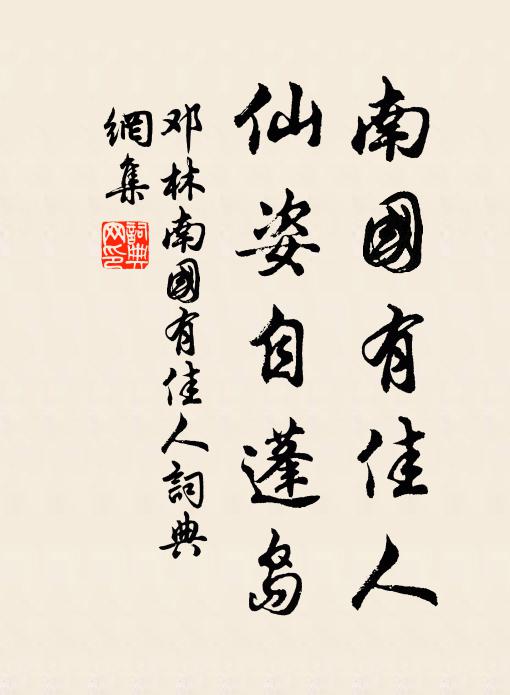 南國有佳人
仙姿自蓬島
邓林南國有佳人詞典
網集
詞典
网印